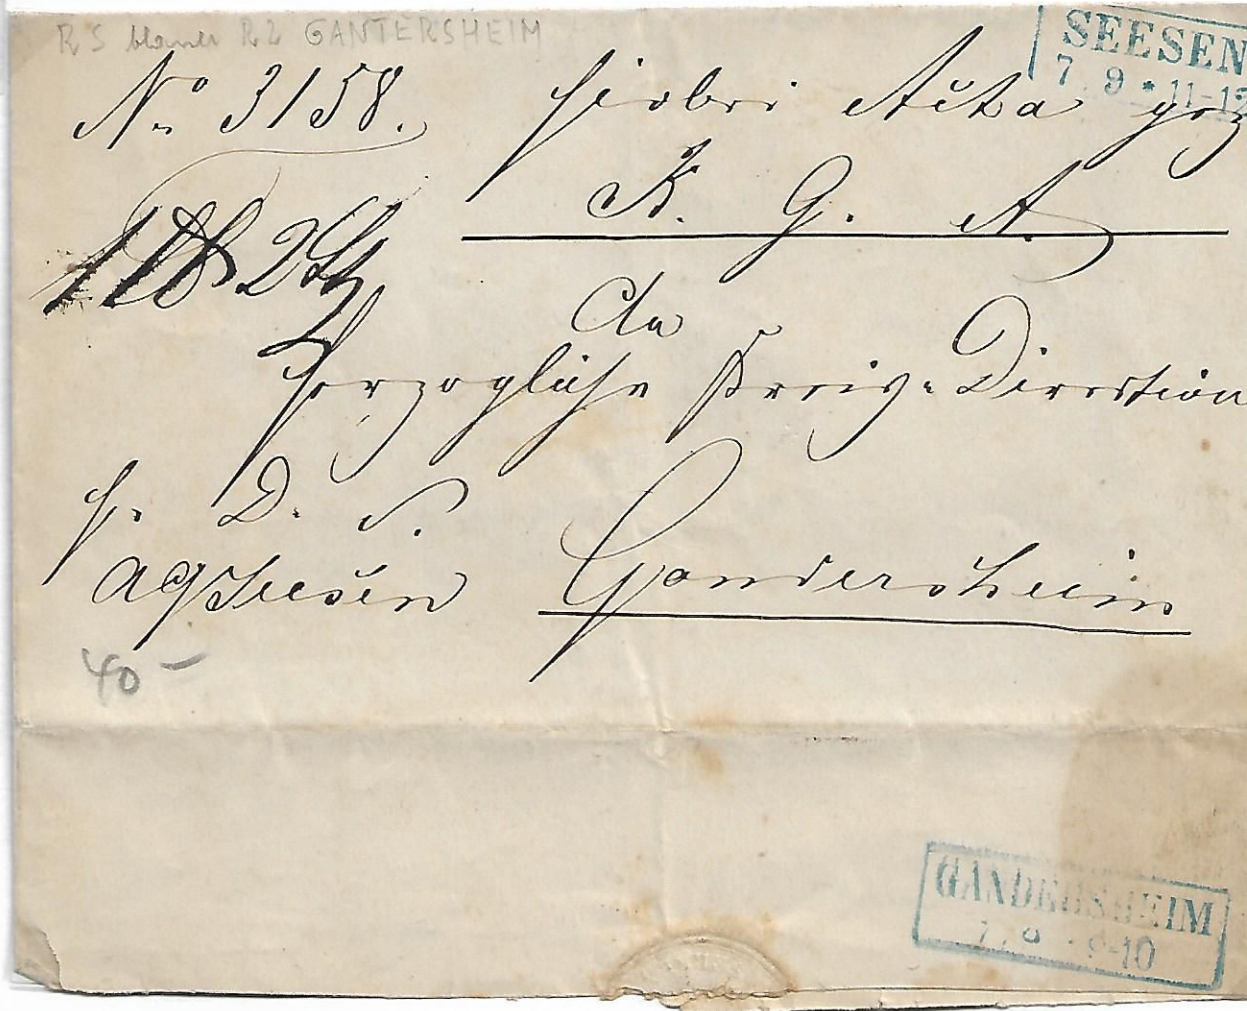 RS blauer R2 GANTERSHEIM
SEESEN
7 9 * 11-12
No 3158.
hiebei Acta
K. G. A.
An
Herzogliche Kreis-Direction
H. D. S.
AG Seesen
Gandersheim
40 -
GANDERSHEIM
9-10